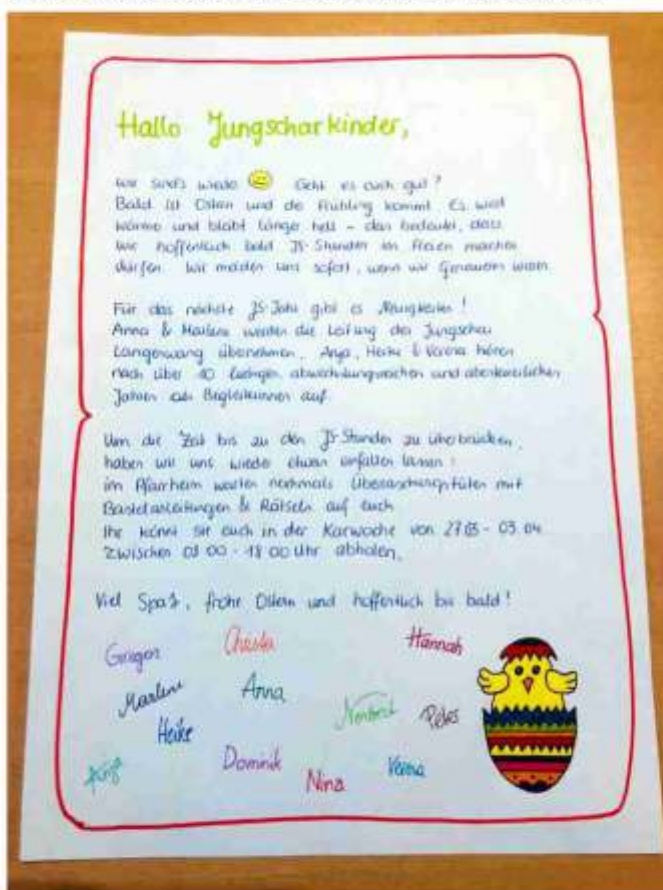 Hallo Jungscharkinder,
wir sind's wieder Geht es euch gut?
Bald ist Ostern und der Frühling kommt. Es wird
wärmer und bleibt länger hell - das bedeutet, dass
wir hoffentlich bald JS-Stunden im Freien machen
dürfen. Wir melden uns sofort, wenn wir Genaueres wissen.
Für das nächste JS-Jahr gibt es Neuigkeiten!
Anna & Marlene werden die Leitung der Jungschar
Langenwang übernehmen. Anja, Heike & Verena hören
nach über 10 lustigen, abwechslungsreichen und abenteuerlichen
Jahren als Begleiterinnen auf.
Um die Zeit bis zu den JS-Stunden zu überbrücken,
haben wir uns wieder etwas einfallen lassen:
im Pfarrheim warten nochmals Überraschungstüten mit
Bastelanleitungen & Rätseln auf euch
Ihr könnt sie euch in der Karwoche von 27.03 - 03.04
zwischen 08.00 - 18.00 Uhr abholen.
Viel Spaß, frohe Ostern und hoffentlich bis bald!
Gregor Christa Hannah
Marlene Anna Norbert
Heike
Anja Dominik Nina Verena